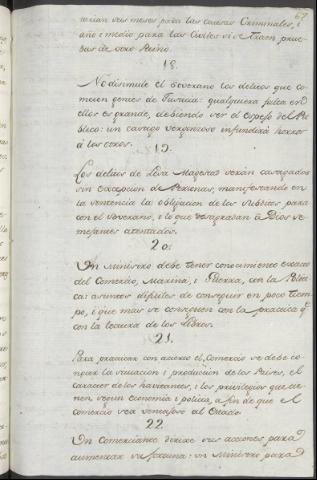 67
merian seis meses para las causas Criminales, i
año i medio para las Civiles si se traen prue-
bas de otro Reino.
18.
No disimule el Soverano los delitos que co-
meten gentes de Justicia: qualquiera falta en
ellos es grande, debiendo ser el espejo del Pu-
blico: un castigo vergonzoso infundirá horror
á los otros.
19.
Los delitos de Lesa Magestad serán castigados
sin excepcion de Personas, manifestando en
la sentencia la obligacion de los Subditos para
con el Soverano, i lo que desagradan á Dios se-
mejantes atentados.
20.
Un Ministro debe tener conocimiento exacto
del Comercio, Marina, i Guerra, con la Politi-
ca: asuntos dificiles de conseguir en poco tiem-
po, i que mas se consiguen con la practica q̃
con la lectura de los Libros.
21.
Para practicar con acierto el Comercio se debe co-
nocer la situacion i produccion de los Paises, el
caracter de los havitantes, i los privilegios que tie-
nen segun economia i politica, a fin de que el
comercio sea ventajoso al Estado.
22.
Un Comerciante dirixe sus acciones para
aumentar su fortuna: un Ministro para